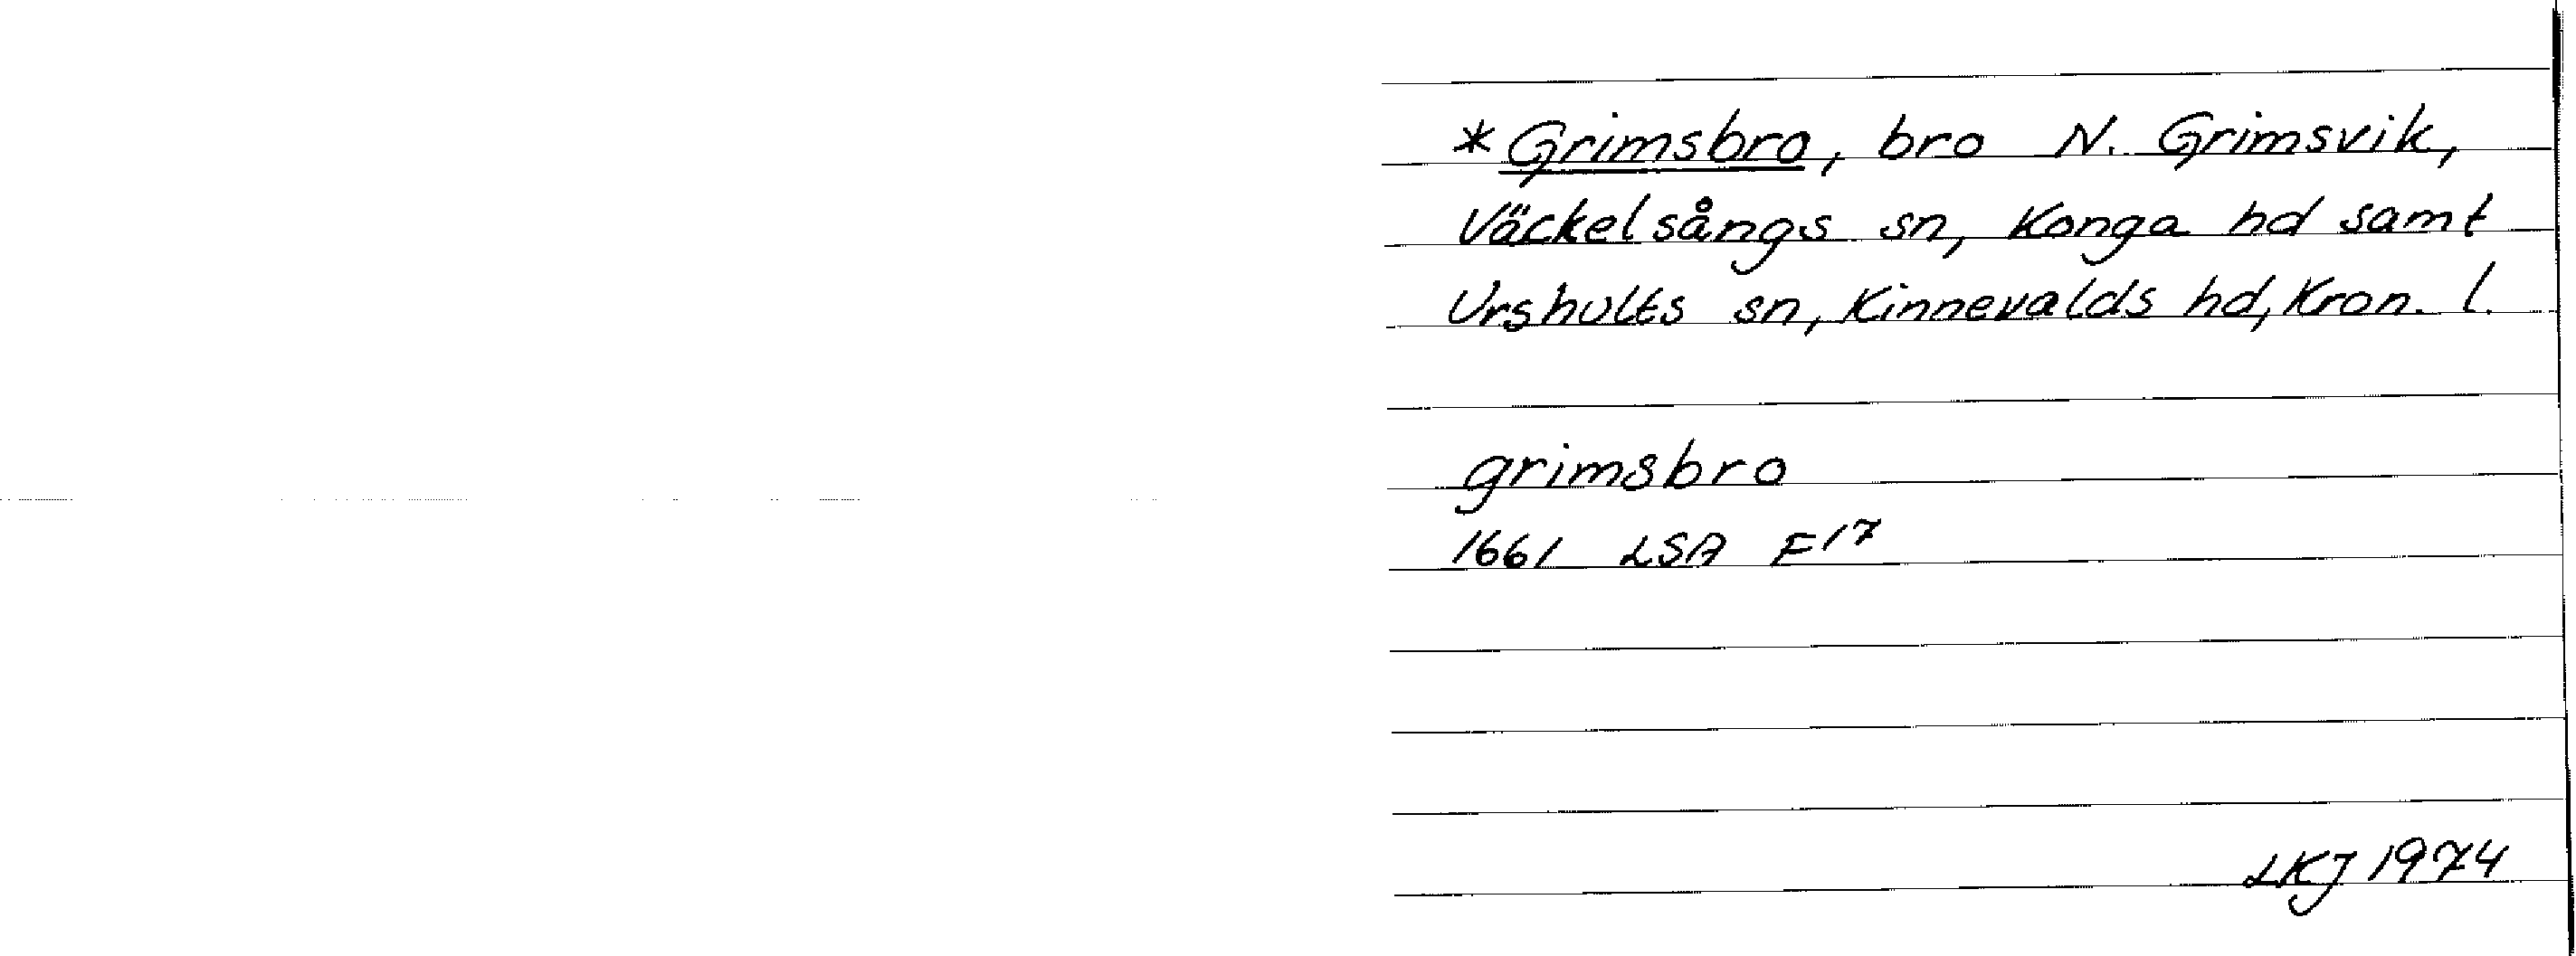 *Grimsbro, bro N. Grimsvik,
Väckelsångs sn, Konga hd samt
Urshults sn, Kinnevalds hd, Kron. l.
grimsbro
1661 LSA F17
LKJ 1974